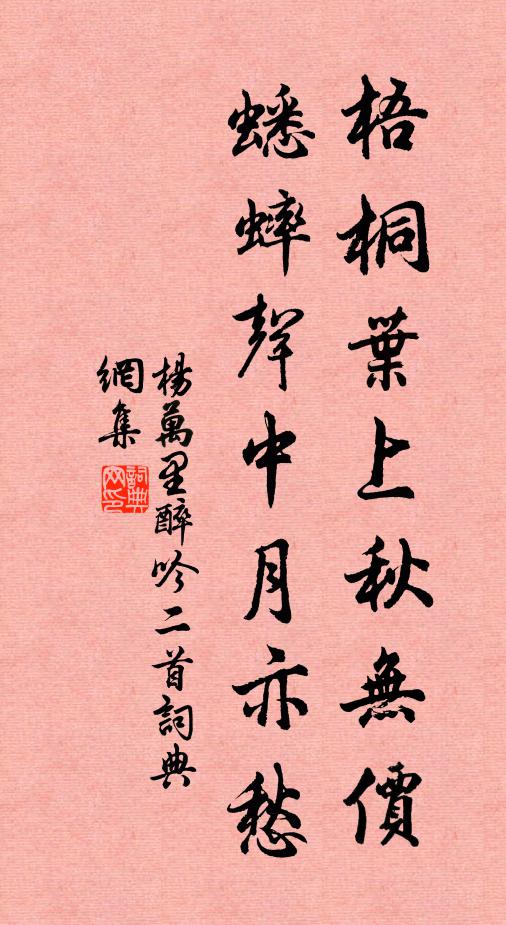 梧桐葉上秋無價
蟋蟀聲中月亦愁
楊萬里醉吟二首詞典
網集
詞典網印